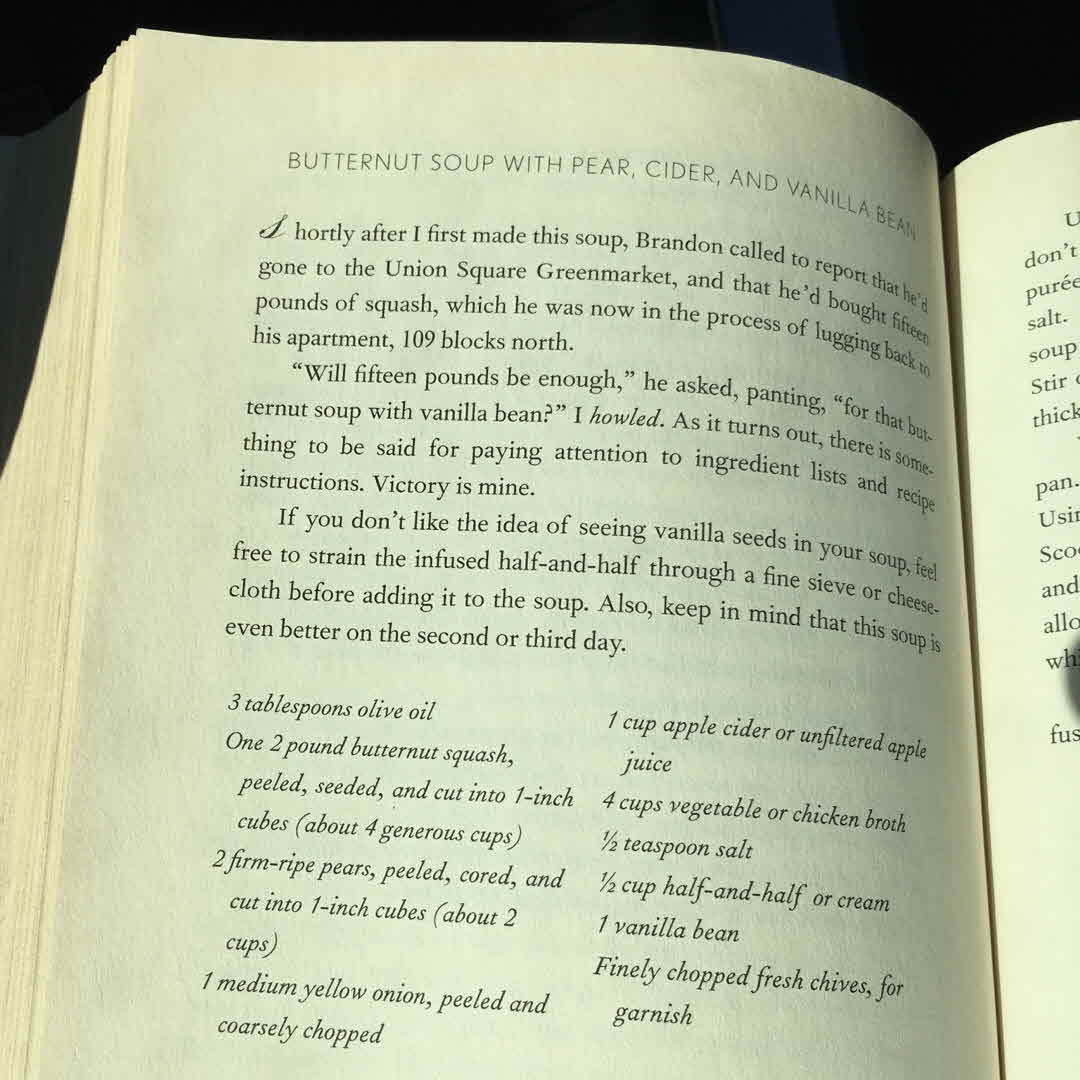 BUTTERNUT SOUP WITH PEAR, CIDER, AND VANILLA BEAN
Shortly after I first made this soup, Brandon called to report that he'd
gone to the Union Square Greenmarket, and that he'd bought fifteen
pounds of squash, which he was now in the process of lugging back to
his apartment, 109 blocks north.
"Will fifteen pounds be enough," he asked, panting, "for that but-
ternut soup with vanilla bean?" I howled. As it turns out, there is some-
thing to be said for paying attention to ingredient lists and recipe
instructions. Victory is mine.
If you don't like the idea of seeing vanilla seeds in your soup, feel
free to strain the infused half-and-half through a fine sieve or cheese-
cloth before adding it to the soup. Also, keep in mind that this soup is
even better on the second or third day.
3 tablespoons olive oil
One 2 pound butternut squash,
peeled, seeded, and cut into 1-inch
cubes (about 4 generous cups)
2 firm-ripe pears, peeled, cored, and
cut into 1-inch cubes (about 2
cups)
1 medium yellow onion, peeled and
coarsely chopped
1 cup apple cider or unfiltered apple
juice
4 cups vegetable or chicken broth
½ teaspoon salt
½ cup half-and-half or cream
1 vanilla bean
Finely chopped fresh chives, for
garnish
U
don't
purée
salt.
soup
Stir
thick
pan.
Usin
Scoo
and
allo
whi
fus